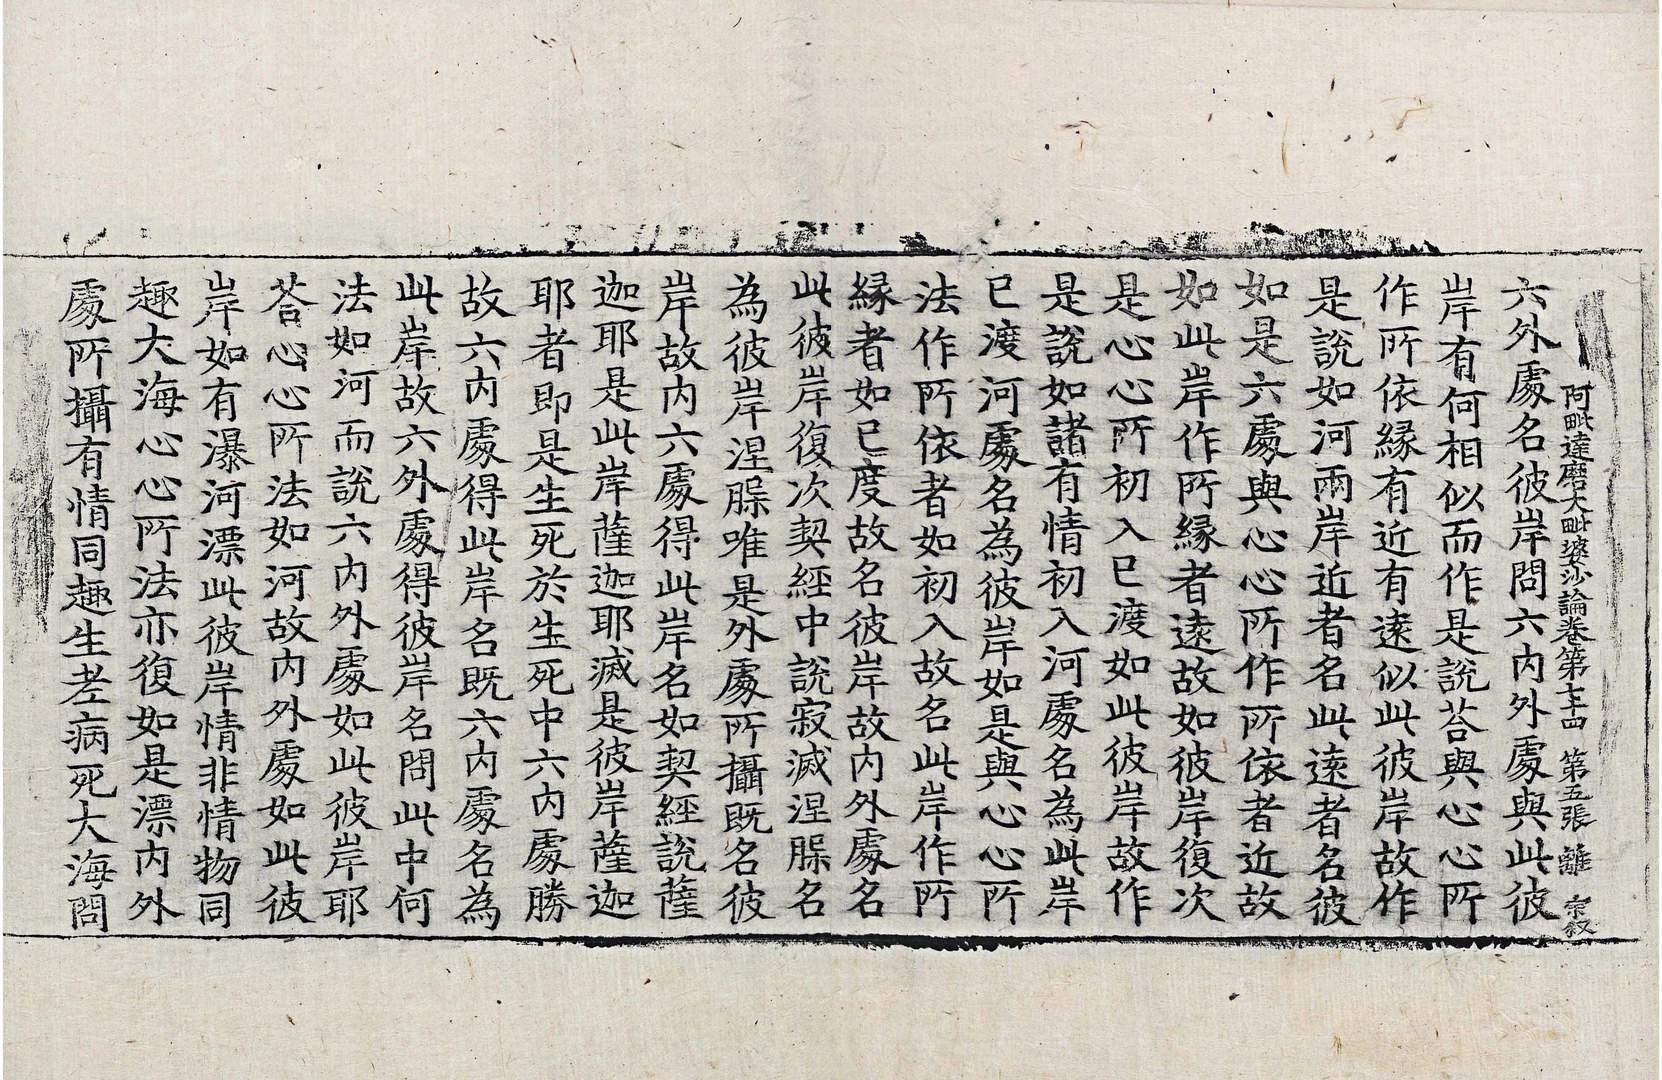 阿毗達磨大毗婆沙論卷第七十四 第五張 離 宗叙
六外處名彼岸問六內外處與此彼
岸有何相似而作是說荅與心心所
作所依緣有近有遠似此彼岸故作
是說如河兩岸近者名此遠者名彼
如是六處與心心所作所依者近故
如此岸作所緣者遠故如彼岸復次
是心心所初入已渡如此彼岸故作
是說如諸有情初入河處名為此岸
已渡河處名為彼岸如是與心心所
法作所依者如初入故名此岸作所
緣者如已度故名彼岸故內外處名
此彼岸復次契經中說寂滅涅槃名
為彼岸涅槃唯是外處所攝既名彼
岸故內六處得此岸名如契經說薩
迦耶是此岸薩迦耶滅是彼岸薩迦
耶者即是生死於生死中六內處勝
故六內處得此岸名既六內處名為
此岸故六外處得彼岸名問此中何
法如河而說六內外處如此彼岸耶
荅心心所法如河故內外處如此彼
岸如有瀑河漂此彼岸情非情物同
趣大海心心所法亦復如是漂內外
處所攝有情同趣生老病死大海問